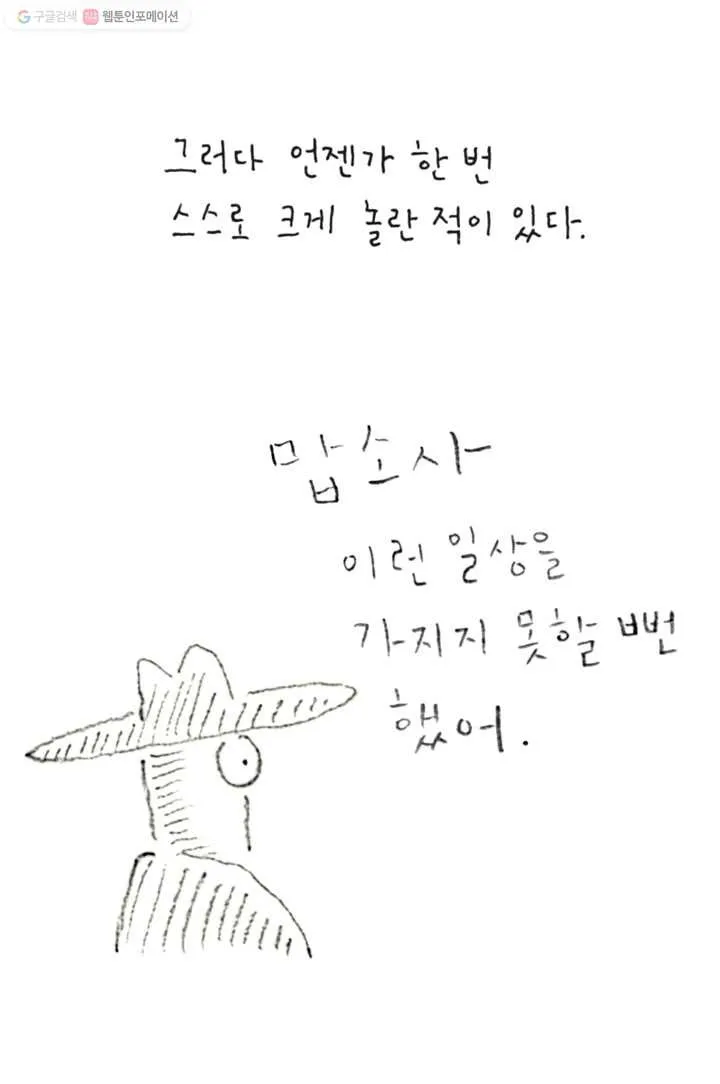 구글검색 웹툰인포메이션
그러다 언젠가 한 번
스스로 크게 놀란 적이 있다.
맙소사
이런 일상을
가지지 못할 뻔
했어.